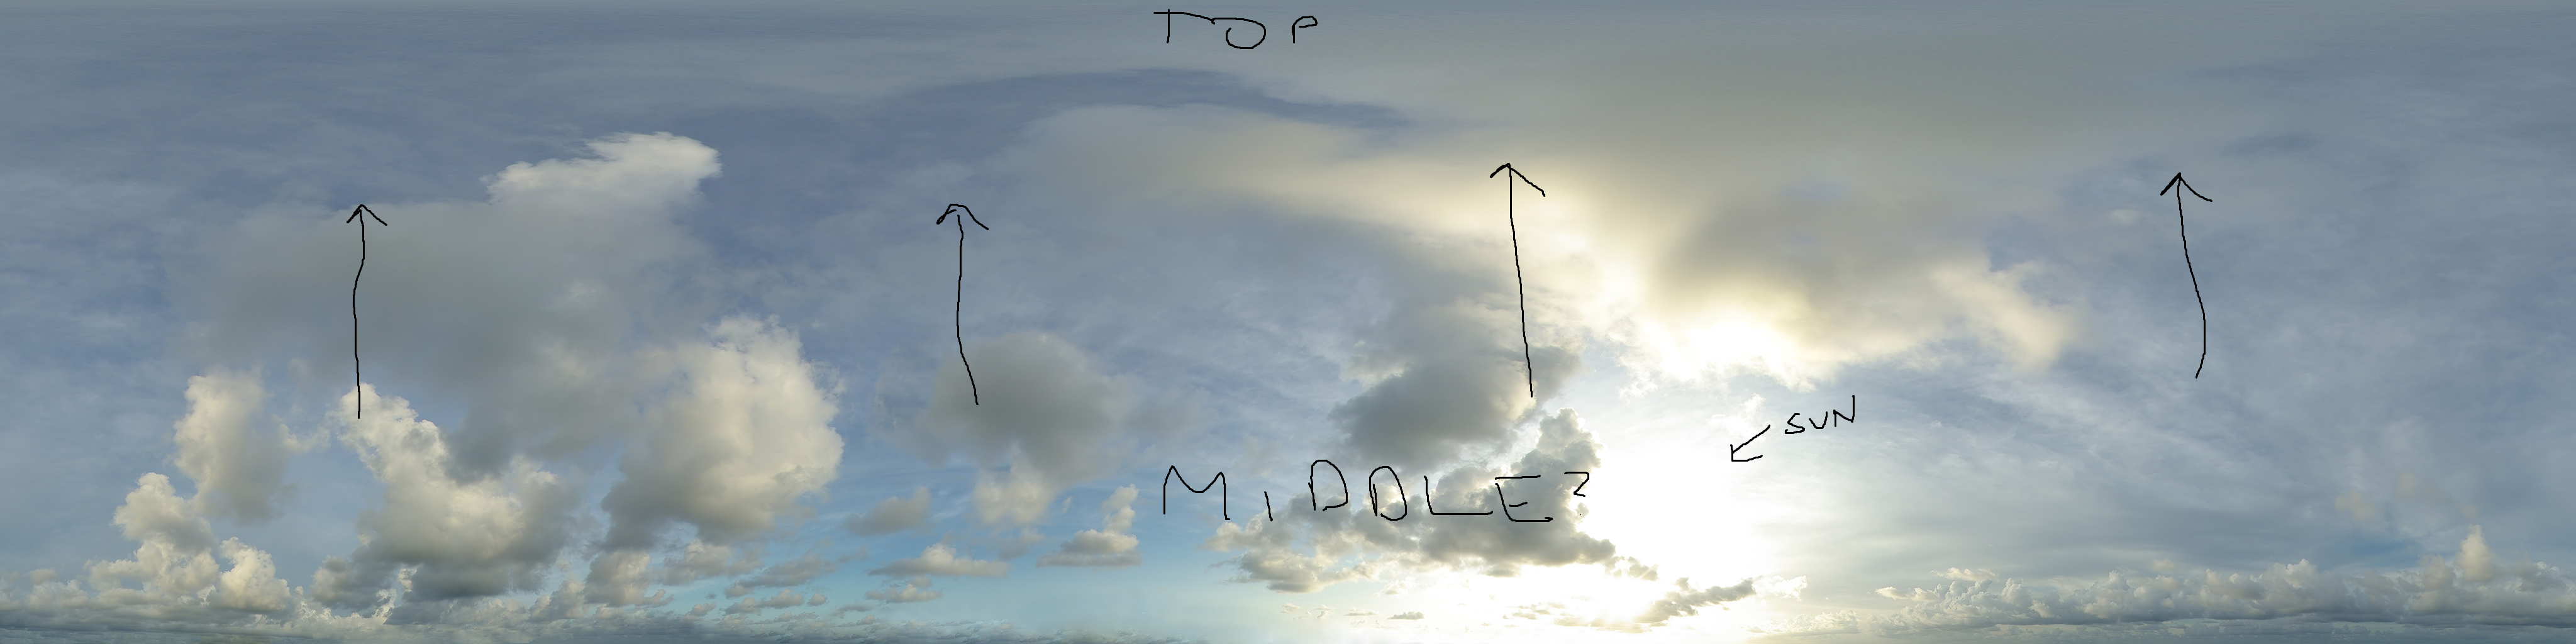 TOP
SUN
MIDDLE?